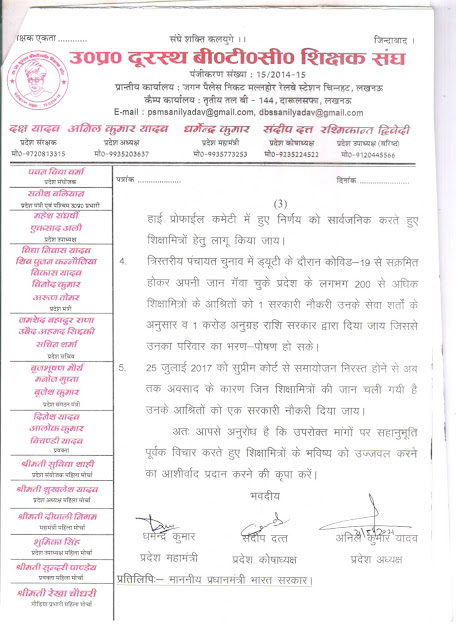 शिक्षक एकता ............
संघे शक्ति कलयुगे ।।
जिन्दावाद ।
उ०प्र० दूरस्थ बी०टी०सी० शिक्षक संघ
पंजीकरण संख्या : 15/2014-15
प्रान्तीय कार्यालय : जगन पैलेस निकट मल्हौर रेलवे स्टेशन चिनहट, लखनऊ
कैम्प कार्यालय : तृतीय तल बी - 144, दारूलसफा, लखनऊ
E-mail : psmssanilyadav@gmail.com, dbssanilyadav@gmail.com
दक्ष यादव अनिल कुमार यादव धर्मेन्द्र कुमार संदीप दत्त रश्मिकान्त द्विवेदी
प्रदेश संरक्षक प्रदेश अध्यक्ष प्रदेश महामंत्री प्रदेश कोषाध्यक्ष प्रदेश उपाध्यक्ष (वरिष्ठ)
मो0-9720813315 मो0-9935203637 मो0-9935773253 मो0-9235224522 मो0-9120445566
प्रदेश संयोजक
सतीश बालियान
प्रदेश मंत्री एवं पश्चिम उ०प्र० प्रभारी
महेश संघर्षी
एकसाद अली
प्रदेश उपाध्यक्ष
विद्या निवास यादव
शिव पूजन कन्नौजिया
विकास यादव
विनोद कुमार
अरूण तोमर
प्रदेश मंत्री
जमशेद बहादुर राणा
उबैद अहमद सिद्दकी
सचिन शर्मा
प्रदेश सचिव
बृजभूषण मौर्य
मनोज गुप्ता
बृजेश कुमार
प्रदेश संगठन मंत्री
दिनेश यादव
आलोक कुमार
प्रवक्ता
श्रीमती सुविधा शाही
प्रदेश संयोजक महिला मोर्चा
श्रीमती सुखलेश यादव
प्रदेश अध्यक्ष महिला मोर्चा
श्रीमती दीपाली निगम
महामंत्री महिला मोर्चा
भूमिका सिंह
प्रदेश उपाध्यक्ष महिला मोर्चा
श्रीमती सुन्दरी पाण्डेय
प्रवक्ता महिला मोर्चा
श्रीमती रेखा चौधरी
मीडिया प्रभारी महिला मोर्चा
पत्रांक ....................
दिनांक ....................
(3)
हाई प्रोफाईल कमेटी में हुए निर्णय को सार्वजनिक करते हुए
शिक्षामित्रों हेतु लागू किया जाय।
4. त्रिस्तरीय पंचायत चुनाव में ड्यूटी के दौरान कोविड-19 से संक्रमित
होकर अपनी जान गॅवा चुके प्रदेश के लगभग 200 से अधिक
शिक्षामित्रों के आश्रितों को 1 सरकारी नौकरी उनके सेवा शर्तो के
अनुसार व 1 करोड़ अनुग्रह राशि सरकार द्वारा दिया जाय जिससे
उनका परिवार का भरण-पोषण हो सके।
5. 25 जुलाई 2017 को सुप्रीम कोर्ट से समायोजन निरस्त होने से अब
तक अवसाद के कारण जिन शिक्षामित्रों की जान चली गयी है
उनके आश्रितों को एक सरकारी नौकरी दिया जाय।
अतः आपसे अनुरोध है कि उपरोक्त मांगों पर सहानुभूति
पूर्वक विचार करते हुए शिक्षामित्रों के भविष्य को उज्जवल करने का
आर्शीवाद प्रदान करने की कृपा करें।
भवदीय
धर्मेन्द्र कुमार संदीप दत्त अनिल कुमार यादव
प्रदेश महामंत्री प्रदेश कोषाध्यक्ष प्रदेश अध्यक्ष
प्रतिलिपिः- माननीय प्रधानमंत्री भारत सरकार।